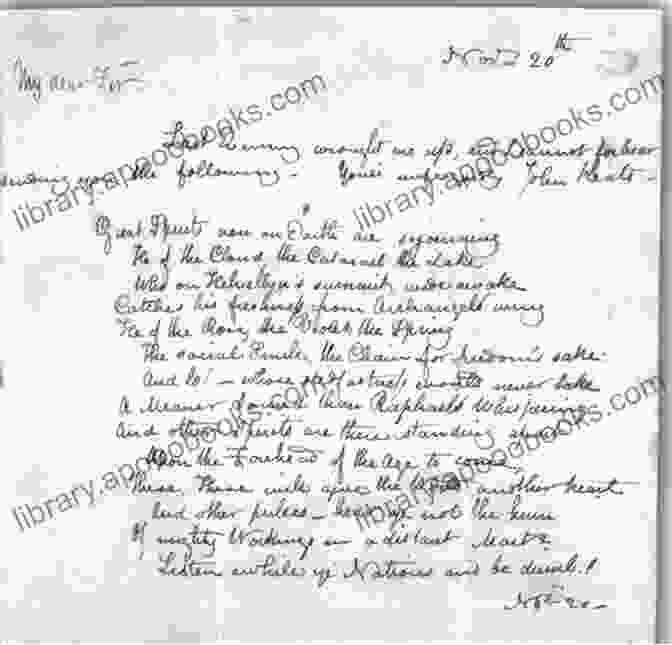 Nov 20th
My dear Sir
Last Evening wrought me up, and I cannot forbear
sending you the following— Your's unfeignedly John Keats—
Great Spirits now on Earth are sojourning
He of the Cloud, the Cataract the Lake
Who on Helvellyn's summit wide awake
Catches his freshness from Archangels wing
He of the Rose, the Violet the Spring
The social Smile, the Chain for freedom's sake:
And lo!— whose stedfastness would never take
A Meaner Sound than Raphael's Whispering
And other Spirits are there standing apart
Upon the Forehead of the Age to come;
These, These will give the World another heart
And other pulses— hear ye not the hum
Of mighty Workings in a distant Mart?
Listen awhile ye Nations and be dumb.!
Nov 20—